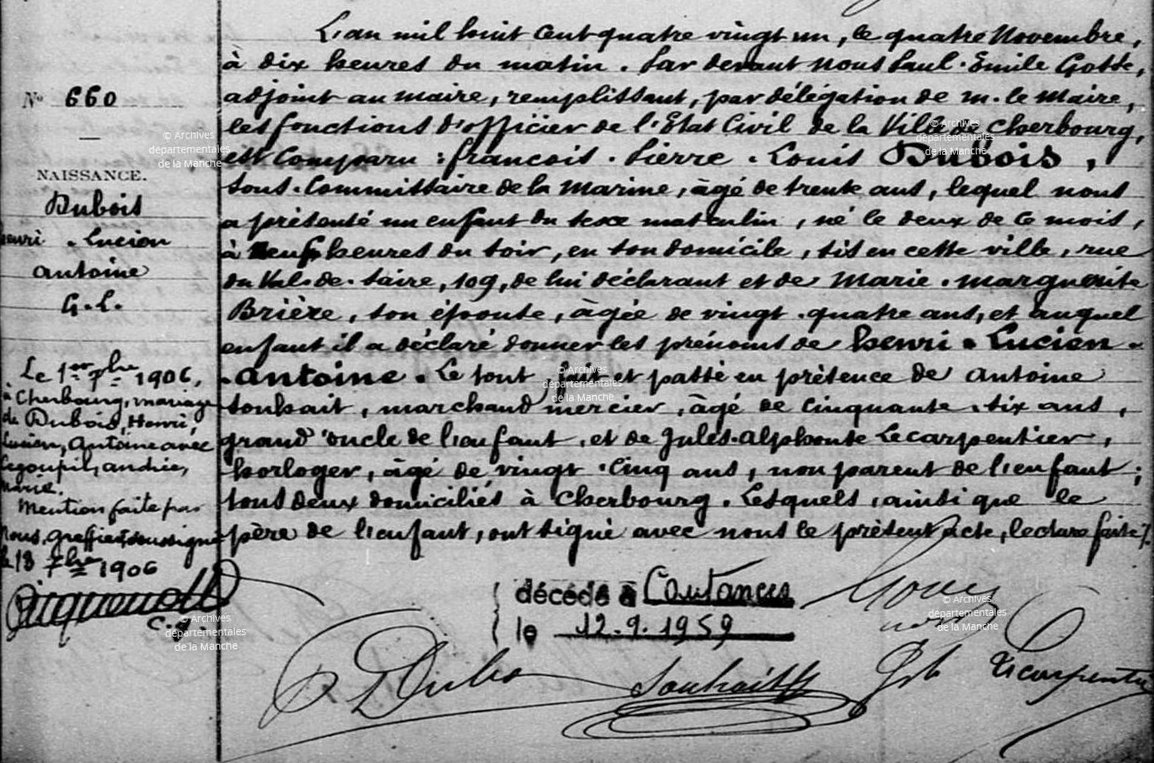 N° 660
NAISSANCE.
Dubois
Henri - Lucien
Antoine
G.L.
Le 1er 7bre 1906,
à Cherbourg, mariage
de Dubois, Henri,
Lucien, Antoine avec
Legoupil, Andrée,
Marie.
Mention faite par
Nous, greffier soussigné
le 18 7bre 1906
L'an mil huit cent quatre vingt un, le quatre Novembre,
à dix heures du matin. Par devant Nous Paul-Emile Gosse,
adjoint au maire, remplissant, par délégation de m. le Maire,
les fonctions d'officier de l'Etat Civil de la Ville de Cherbourg,
est Comparu : françois - Pierre - Louis Dubois,
sous-Commissaire de la Marine, âgé de trente ans, lequel nous
a présenté un enfant du sexe masculin, né le deux de ce mois,
à neuf heures du soir, en son domicile, sis en cette ville, rue
du Val-de-Saire, 109, de lui déclarant et de Marie-Marguerite
Brière, son épouse, âgée de vingt-quatre ans, et auquel
enfant il a déclaré donner les prénoms de Henri - Lucien -
- Antoine. Le tout fait et passé en présence de Antoine
Souhait, marchand mercier, âgé de cinquante-six ans,
grand'oncle de l'enfant, et de Jules-Alphonse Lecarpentier,
horloger, âgé de vingt-cinq ans, non parent de l'enfant;
tous deux domiciliés à Cherbourg. Lesquels, ainsi que le
père de l'enfant, ont signé avec nous le présent acte, lecture faite.
décédé à Coutances
le 12.9.1959
Dubois
Souhait
Lecarpentier
© Archives
départementales
de la Manche
© Archives
départementales
de la Manche
© Archives
départementales
de la Manche
© Archives
départementales
de la Manche
© Archives
départementales
de la Manche